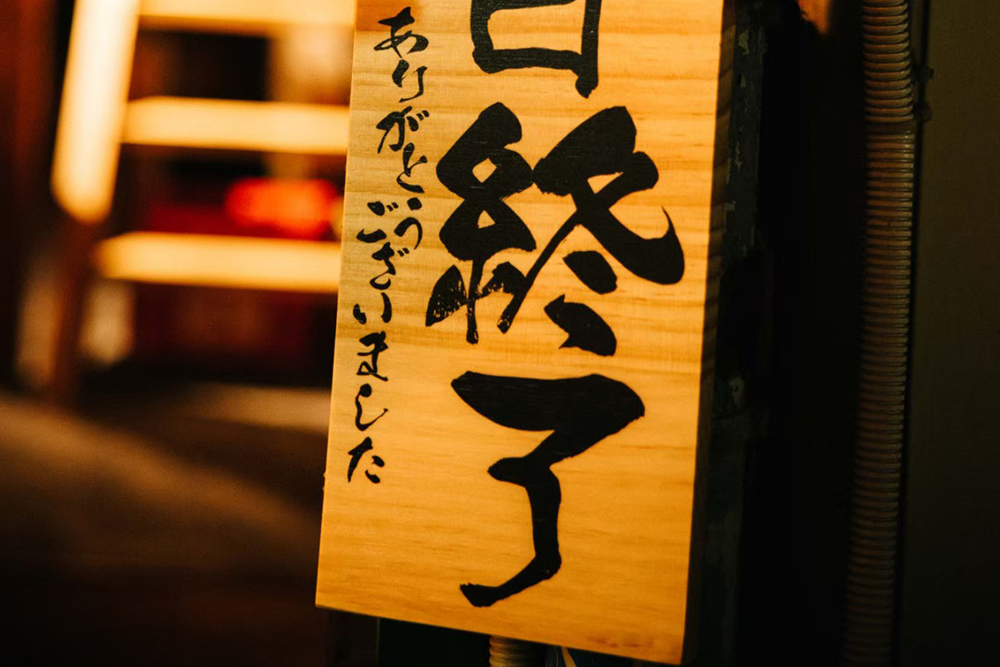 日終了
ありがとうございました